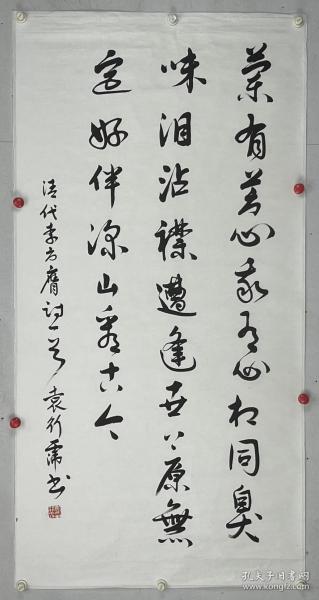 蘭有苦心我有心相同臭
味泪沾襟遭逢世上原無
定好伴深山看古今
清代李方膺詩一首 袁行霈书
孔夫子旧书网